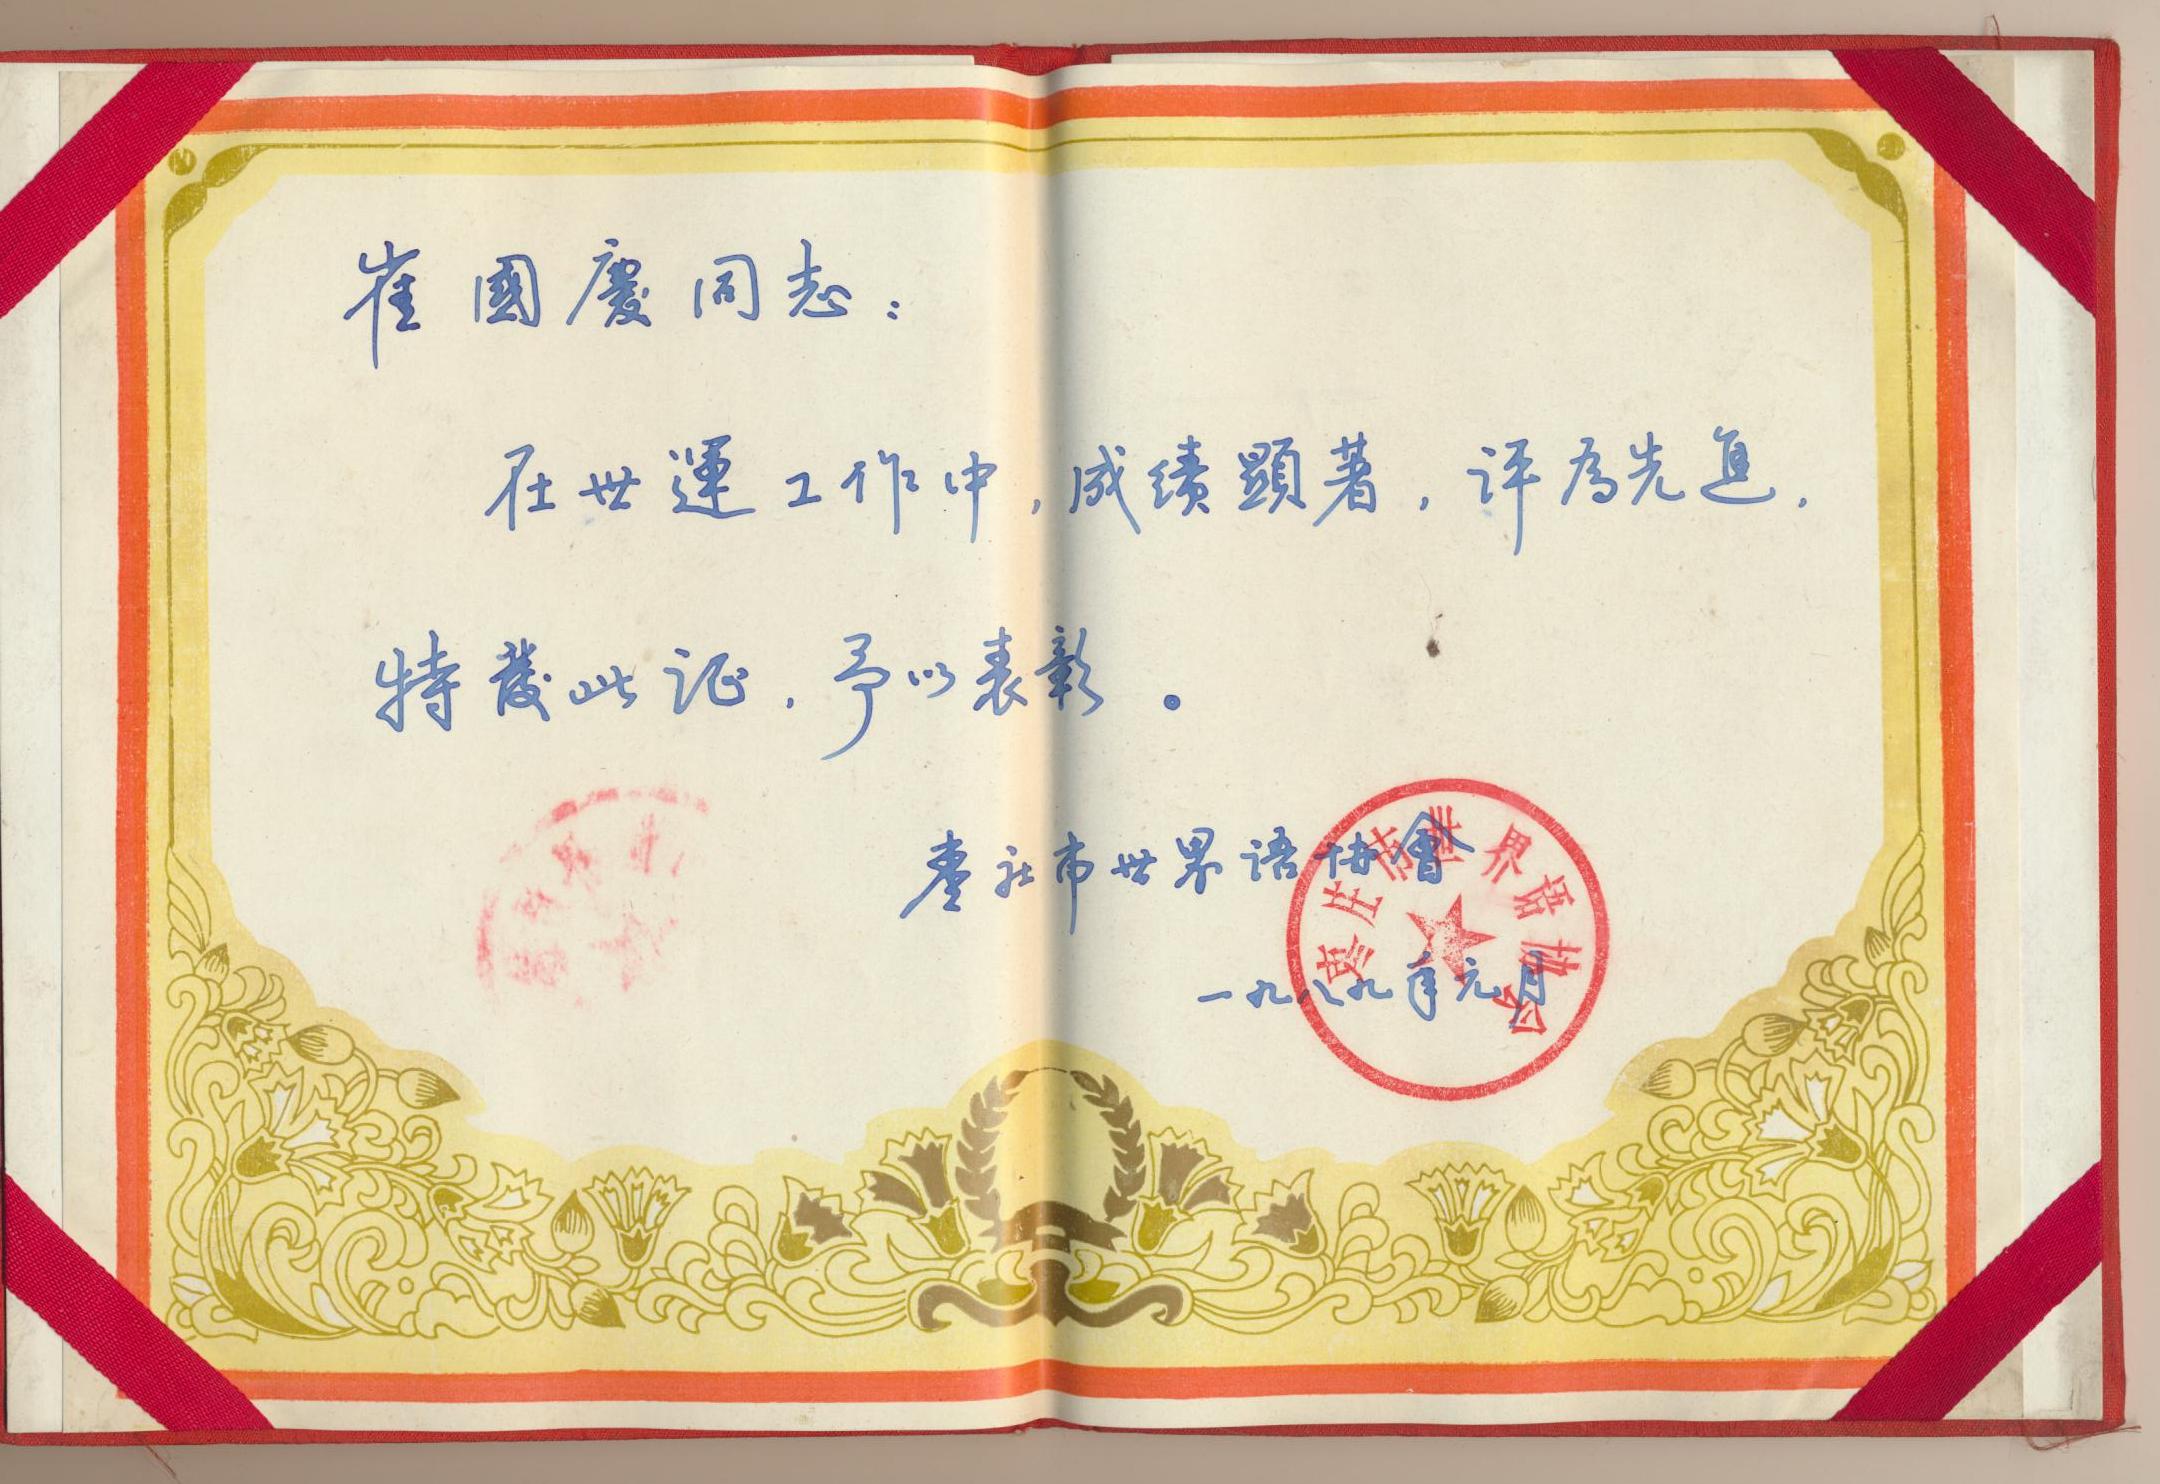 崔國慶同志：
在世運工作中，成績顯著，評為先進，
特發此证，予以表彰。
枣庄市世界语协會
一九八九年元月
枣庄市世界语协会